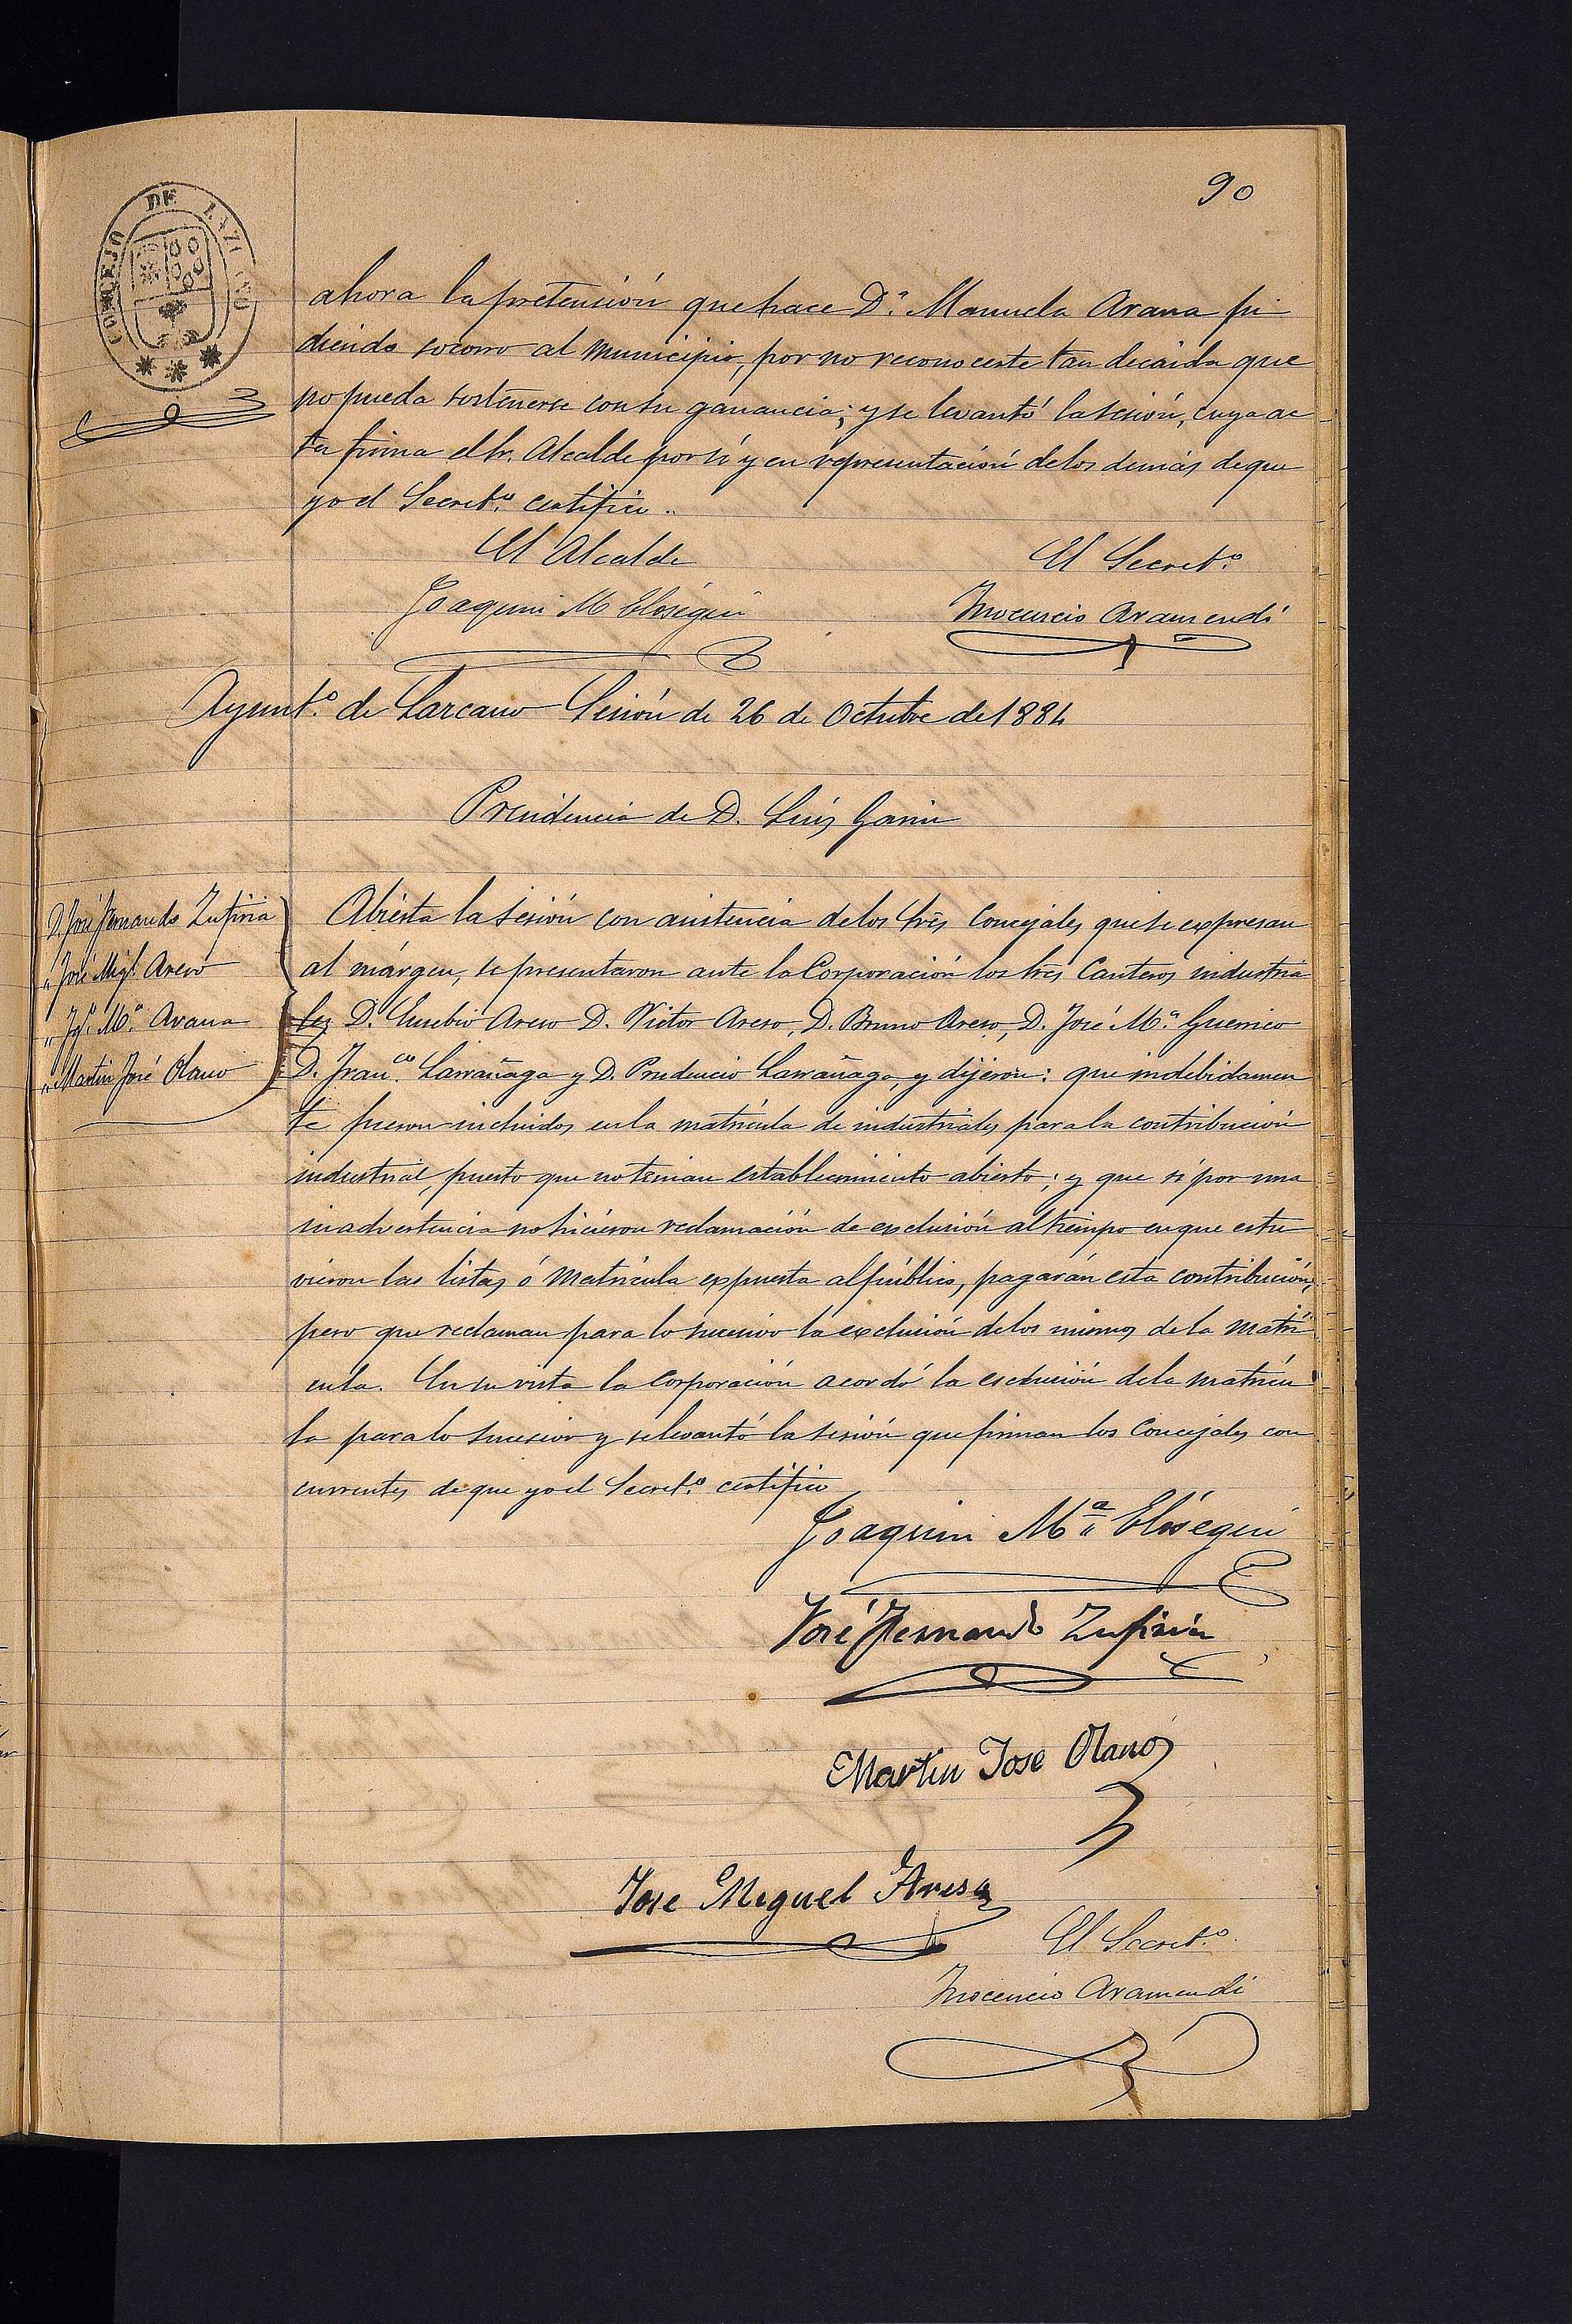 90
CONCEJO DE LAZCANO
ahora la pretensión que hace D.ª Manuela Arana pi
diendo socorro al Municipio, por no reconocerte tan decaida que
no pueda sostenerse con su ganancia; y se levantó la sesión, cuya ac
ta firma el Sr. Alcalde por sí y en representación de los demás de que
yo el Secret.º certifico..
El Alcalde
El Secret.º
Joaquin M Elosegui
Inocencio Aramendi
Ayunt.º de Larcano Sesión de 26 de Octubre de 1884
Presidencia de D. Luis Garin
D. José Fernando Zufiria
" José Mig.l Areso
" Jph. M.ª Arana
" Martin José Olano
Abierta la sesión con asistencia de los Sres Concejales que se expresan
al márgen, se presentaron ante la Corporación los tres Canteros industria
les D. Eusebio Areso D. Victor Areso, D. Bruno Areso, D. José M.ª Guerrico
D. Fran.co Larrañaga y D. Prudencio Larrañaga, y dijeron: que indebidamen
te fueron incluidos en la matrícula de industriales para la contribución
industrial, puesto que no tenian establecimiento abierto; y que si por una
inadvertencia no hicieron reclamación de exclusión al tiempo en que estu
vieron las listas ó Matrícula expuesta al público, pagarán esta contribución,
pero que reclaman para lo sucesivo la exclusión de los mismos de la matrí
cula. En su vista la Corporación acordó la esclusión de la matrícu
la para lo sucesivo y se levantó la sesión que firman los Concejales con
currentes de que yo el Secret.º certifico
Joaquin M.ª Elósegui
José Fernando Zufiria
Martin Jose Olano
Jose Miguel Areso
El Secret.º
Inocencio Aramendi